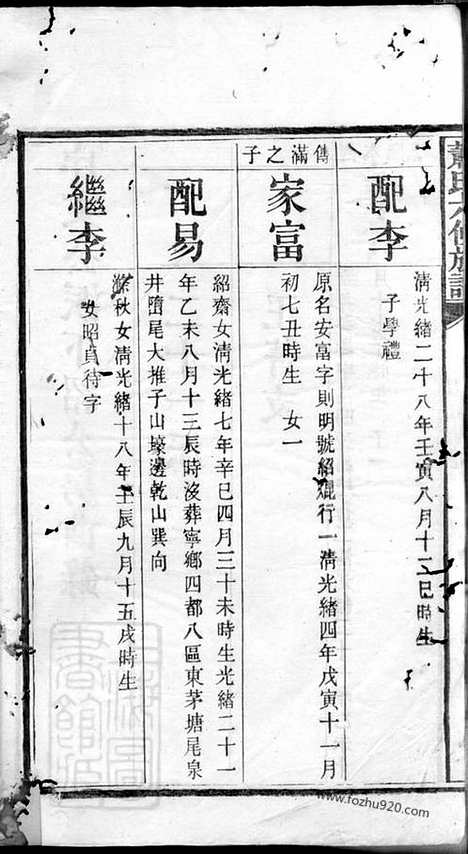 氏六修族譜
配李
清光緒二十八年壬寅八月十二巳時生
子學禮
傳滿之子
家富
原名安富字則明號紹焜行一清光緒四年戊寅十一月
初七丑時生 女一
配易
紹齋女清光緒七年辛巳四月三十未時生光緒二十一
年乙未八月十三辰時沒葬寧鄉四都八區東茅塘尾泉
井墮尾大推子山壕邊乾山巽向
繼李
秋女清光緒十八年壬辰九月十五戌時生
女昭貞待字
www.fozhu920.com